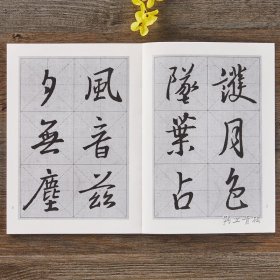 護月色
墜葉占
風音兹
夕無塵